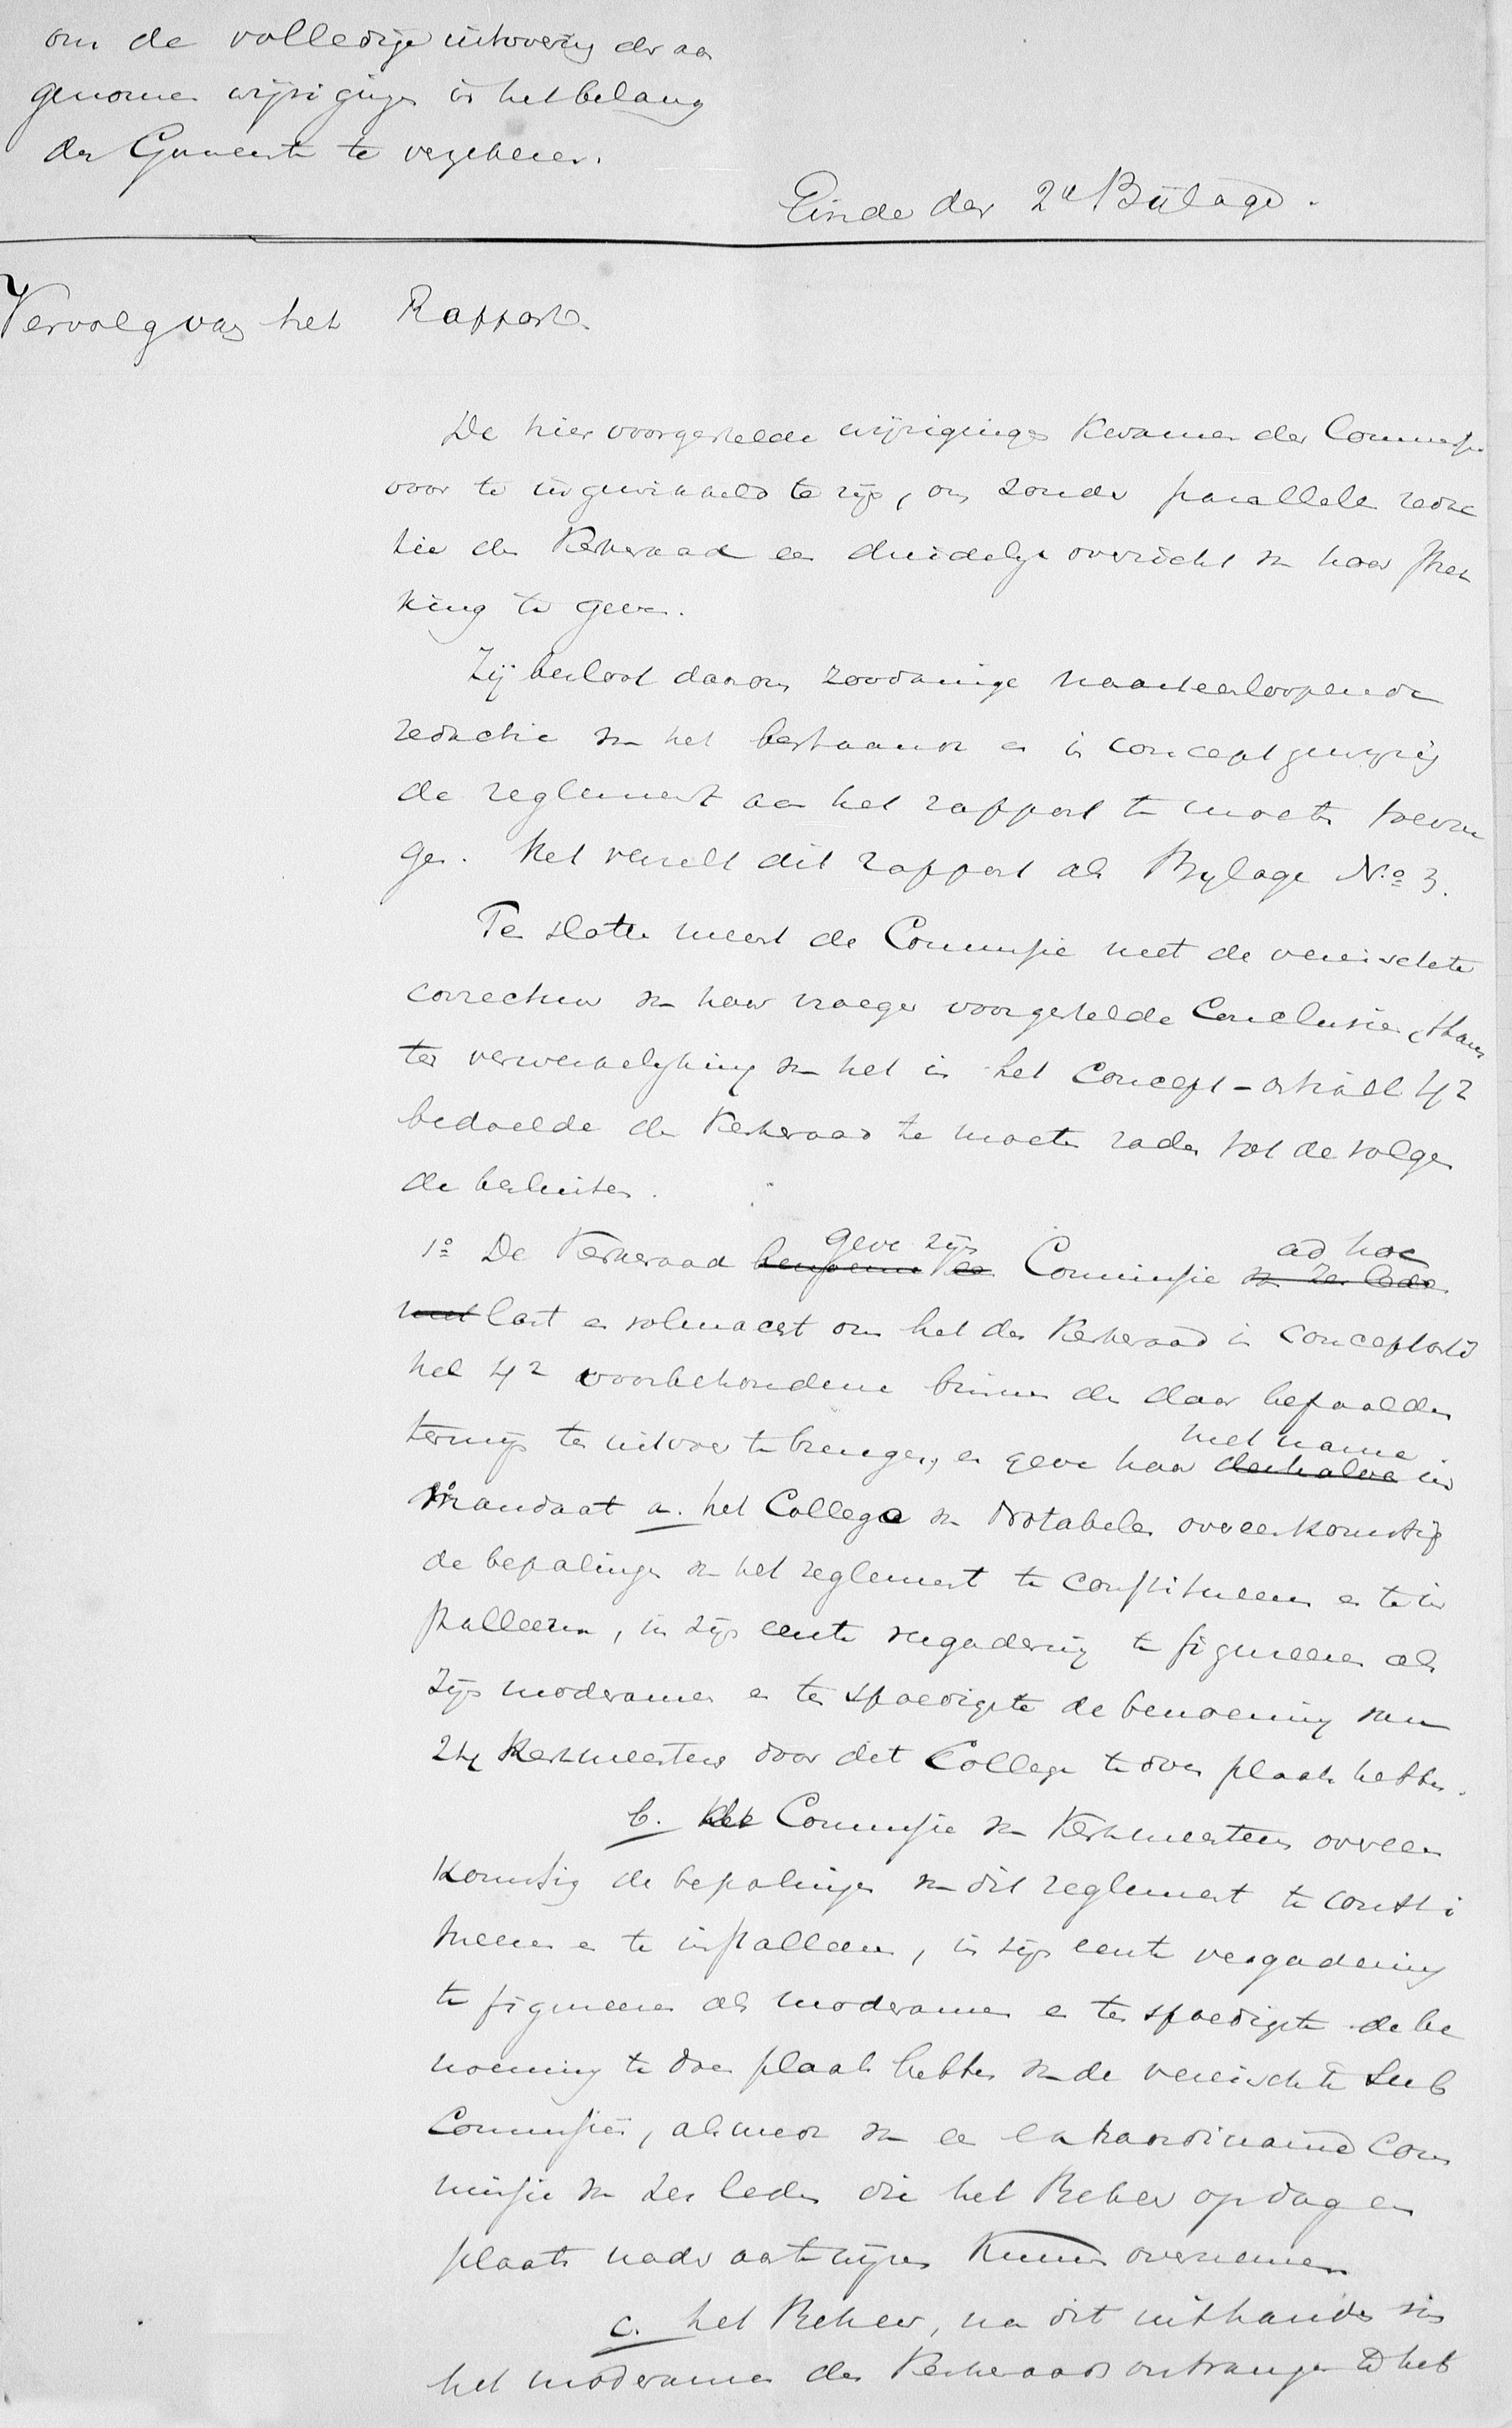 om de volledige uitvoering der aan
genomen wijzigingen in het belang
der Gemeente te verzekeren.
Einde der 2e Bijlage.
Vervolg van het Rapport.
De hier voorgestelde wijzigingen kwamen der Commissie
voor te ingewikkeld te zijn, om zonder parallele redac
tie den Kerkeraad een duidelijk overzicht van haar strek
king te geven.
Zij besloot daarom zoodanige naasteenloopende
redactie van het bestaande en in concept gewijzig
de reglement aan het rapport te moeten toevoe
gen. Het verzelt dit rapport als Bylage No 3.
Ten slotte meent de Commissie met de vereischte
correctien van haar vroeger voorgestelde Conclusien, thans
ter verwezenlyking van het in het Concept-artikel 42
bedoelde den Kerkeraad te moeten raden tot de volgen
de besluiten.
1o De Kerkeraad benoeme eene geve zijn Commissie van zes leden ad hoc
met last en volmacht om het den Kerkeraad in conceptarti
kel 42 voorbehoudene binnen den daar bepaalden
termijn ten uitvoer te brengen, en geve haar derhalve met name in
mandaat a. het College van Notabelen overeenkomstig
de bepalingen van het reglement te constitueeren en te in
stalleeren, in zijn eerste vergadering te figureeren als
zijn moderamen en ten spoedigste de benoeming van
24 Kerkmeesters door dat College te doen plaats hebben.
b. de Commissie van Kerkmeesters overeen
komstig de bepalingen van dit reglement te consti
tueeren en te installeeren, in zijn eerste vergadering
te figureeren als moderamen en ten spoedigste de be
noeming te doen plaats hebben van de vereischte Sub
Commissien, alsmede van een extraordinaire Com
missie van zes leden die het Beheer op dag en
plaats nader aan te wijzen kunnen overnemen
c. het Beheer, na dit uit handen van
het moderamen des Kerkeraads ontvangen te heb